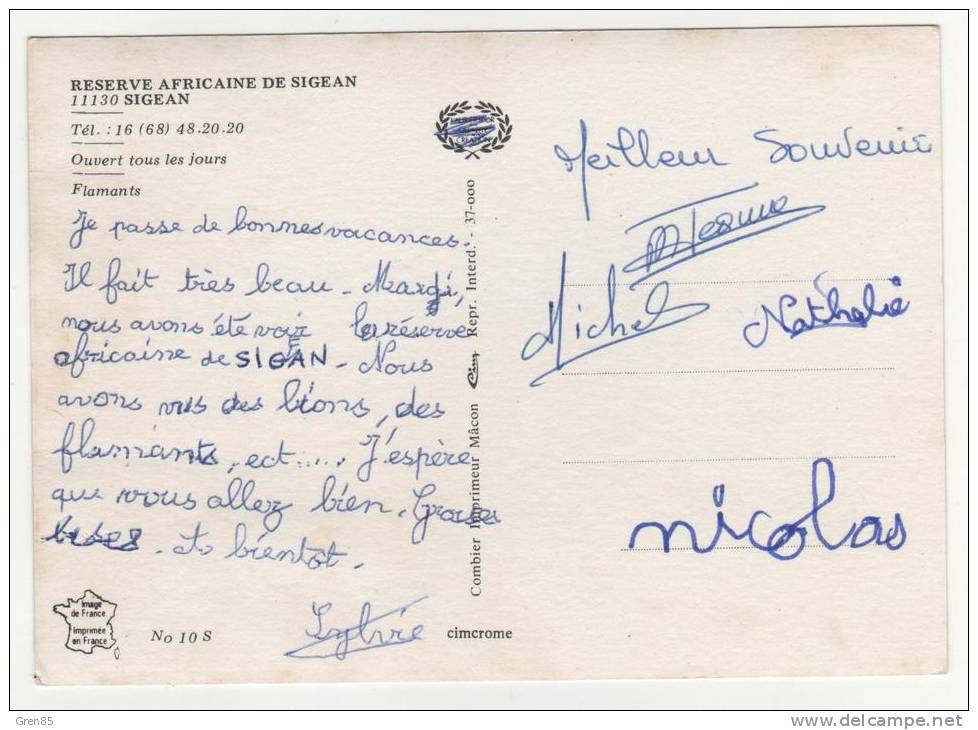 RESERVE AFRICAINE DE SIGEAN
11130 SIGEAN
Tél. : 16 (68) 48.20.20
Ouvert tous les jours
Flamants
Je passe de bonnes vacances.
Il fait très beau. Mardi,
nous avons été voir la réserve
africaine de SIGEAN. Nous
avons vus des lions, des
flamants, ect.... J'espère
que vous allez bien. Grosses
bises. A bientot.
Sylvie
Image
de France
Imprimée
en France
No 10 S
cimcrome
Combier Imprimeur Mâcon Cim Repr. Interd. - 37-000
Meilleur Souvenir
Michel
Nathalie
nicolas
Gren85
www.delcampe.net